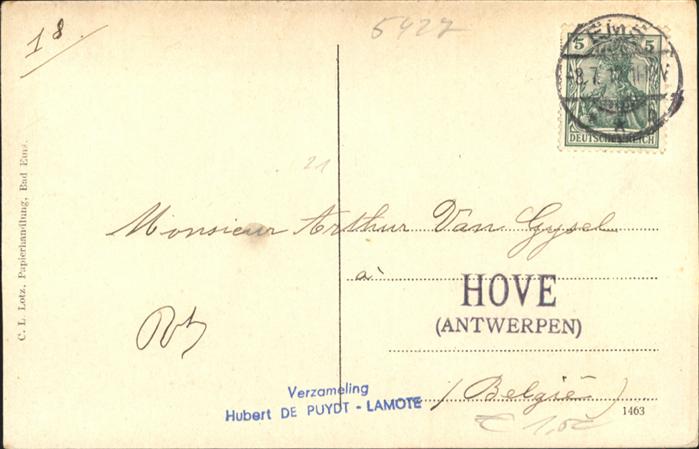 18
5427
EMS
5 5
DEUTSCHES REICH
21
C. L. Lotz, Papierhandlung, Bad Ems.
Monsieur Arthur Van Gysel
à
HOVE
(ANTWERPEN)
(België)
Verzameling
Hubert DE PUYDT - LAMOTE
1463